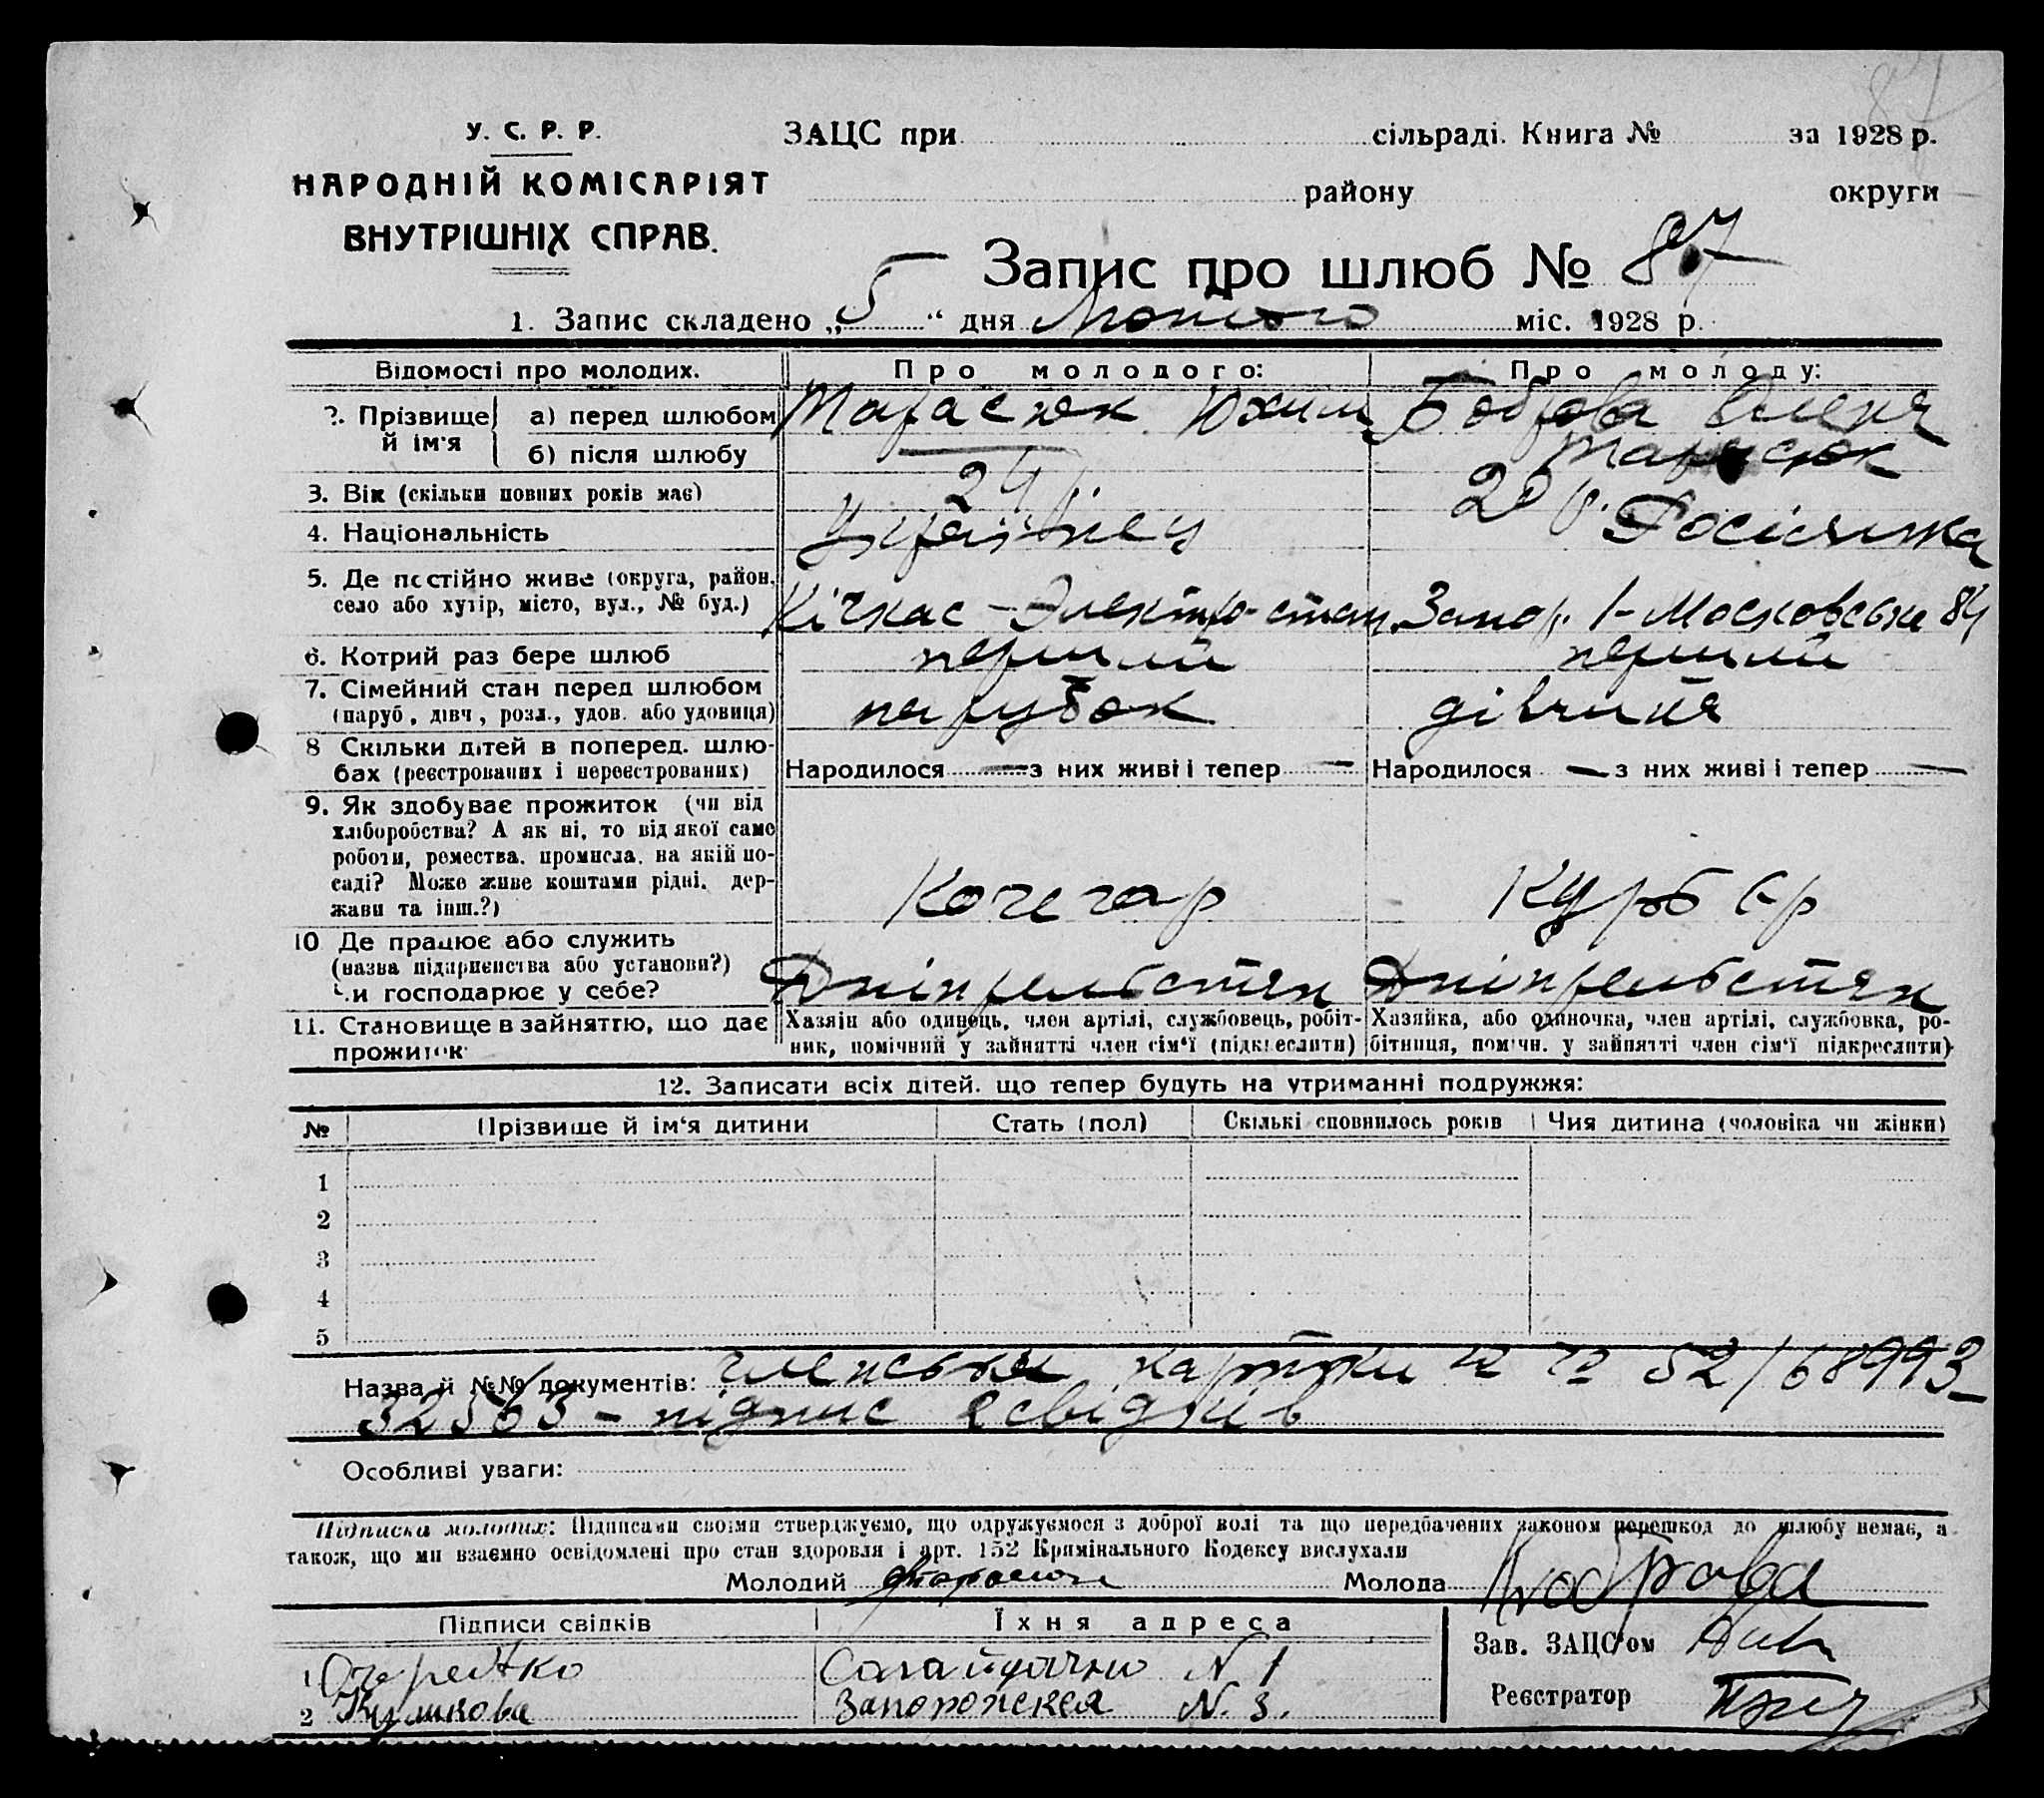 87
У. С. Р. Р.
НАРОДНІЙ КОМІСАРІЯТ
ВНУТРІШНІХ СПРАВ.
ЗАЦС при сільраді. Книга № за 1928 р.
району округи
Запис про шлюб № 87
1. Запис складено „5“ дня Лютого міс. 1928 р.
Відомості про молодих. Про молодого: Про молоду:
2. Прізвище й ім'я а) перед шлюбом Тарасюк Юхим Боброва Олена
б) після шлюбу — Тарасюк
3. Вік (скільки повних років має) 24 р. 20 р.
4. Національність Українець Росіянка
5. Де постійно живе (округа, район, село або хутір, місто, вул., № буд.) Кічкас – Электро-стан. Запор. 1-Московська 84
6. Котрий раз бере шлюб перший перший
7. Сімейний стан перед шлюбом (паруб., дівч., розл., удов. або удовиця) парубок дівчина
8 Скільки дітей в поперед. шлюбах (реєстрованих і нереєстрованих) Народилося — з них живі і тепер — Народилося — з них живі і тепер —
9. Як здобуває прожиток (чи від хліборобства? А як ні, то від якої саме роботи, ремества, промисла, на якій посаді? Може живе коштами рідні, держави та інш.?) Кочегар Курьєр
10 Де працює або служить (назва підприємства або установи?) Чи господарює у себе? Дніпрельбстан Дніпрельбстан
11. Становище в зайняттю, що дає прожиток Хазяїн або одинець, член артілі, службовець, робітник, помічний у зайнятті член сім'ї (підкреслити) Хазяйка, або одиночка, член артілі, службовка, робітниця, помічн. у зайнятті член сім'ї підкреслити)
12. Записати всіх дітей, що тепер будуть на утриманні подружжя:
№ Прізвище й ім'я дитини Стать (пол) Скількі сповнилось років Чия дитина (чоловіка чи жінки)
1
2
3
4
5
Назва й №№ документів: членські картки 52/68993
32563 – підпис свідків
Особливі уваги:
Підписка молодих: Підписами своїми стверджуємо, що одружуємося з доброї волі та що передбачених законом перешкод до шлюбу немає, а
також, що ми взаємно освідомлені про стан здоровля і арт. 152 Кримінального Кодексу вислухали
Молодий Тарасюк Молода Боброва
Підписи свідків Їхня адреса
Зав. ЗАЦС'ом
1 Очередко Сагайдачно N 1
Реєстратор
2 Куликова Запорожская N. 3.